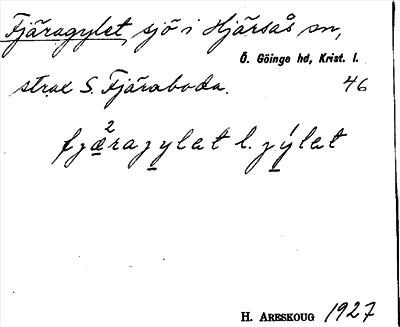 Fjäragylet, sjö i Hjärsås sn,
Ö. Göinge hd, Krist. l.
strax S. Fjäraboda. 46
fjæ̱²raჳy̱lat l. ჳý̱lat
H. ARESKOUG 1927